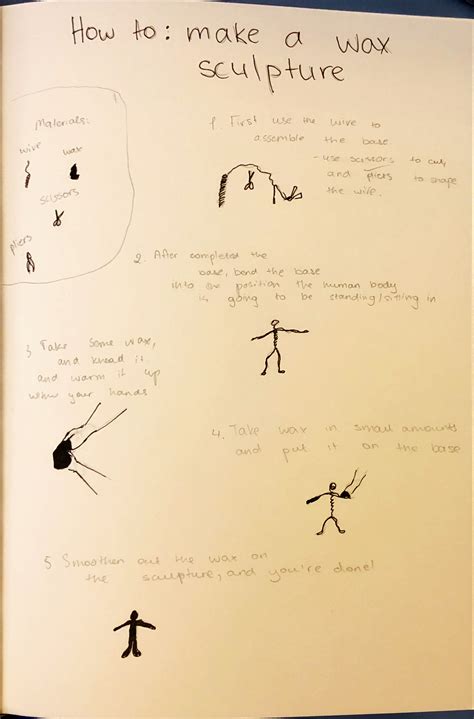 How to: make a wax
sculpture
Materials:
wire wax
scissors
pliers
1. First use the wire to
assemble the base
- use scissors to cut,
and pliers to shape
the wire.
2. After completed the
base, bend the base
into the position the human body
is going to be standing/sitting in
3. Take some wax,
and knead it
and warm it up
with your hands
4. Take wax in small amounts
and put it on the base
5. Smoothen out the wax on
the sculpture, and you're done!